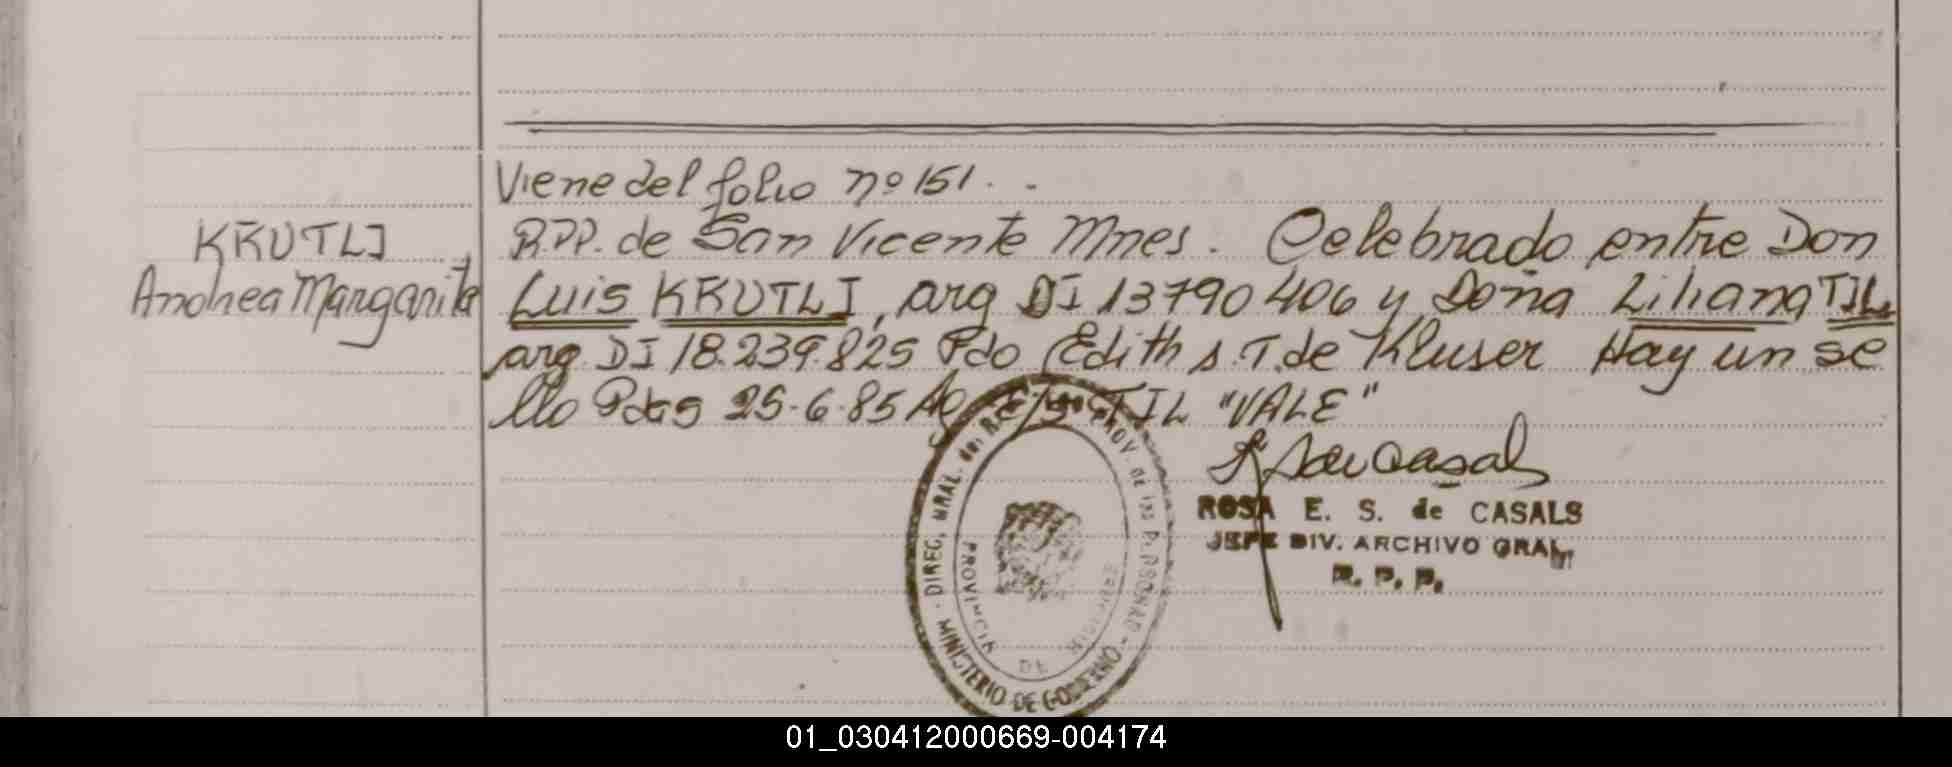 Viene del folio nº 151. -
KRUTLI
Andrea Margarita
R.PP. de San Vicente Mnes. Celebrado entre Don
Luis KRUTLI, arg DI 13790406 y Doña Liliana TIL
arg. DI 18.239.825 Fdo Edith s.T. de Kluser Hay un se
llo Pdas 25-6-85 TIL "VALE"
ROSA E. S. de CASALS
JEFE DIV. ARCHIVO GRAL
R. P. P.
DIREC. GRAL. del PROV. de las PERSONAS
MINISTERIO DE GOBIERNO
PROVINCIA DE MISIONES
01_030412000669-004174